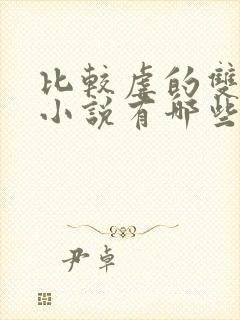 比較虐的雙
小說有哪些
尹卓